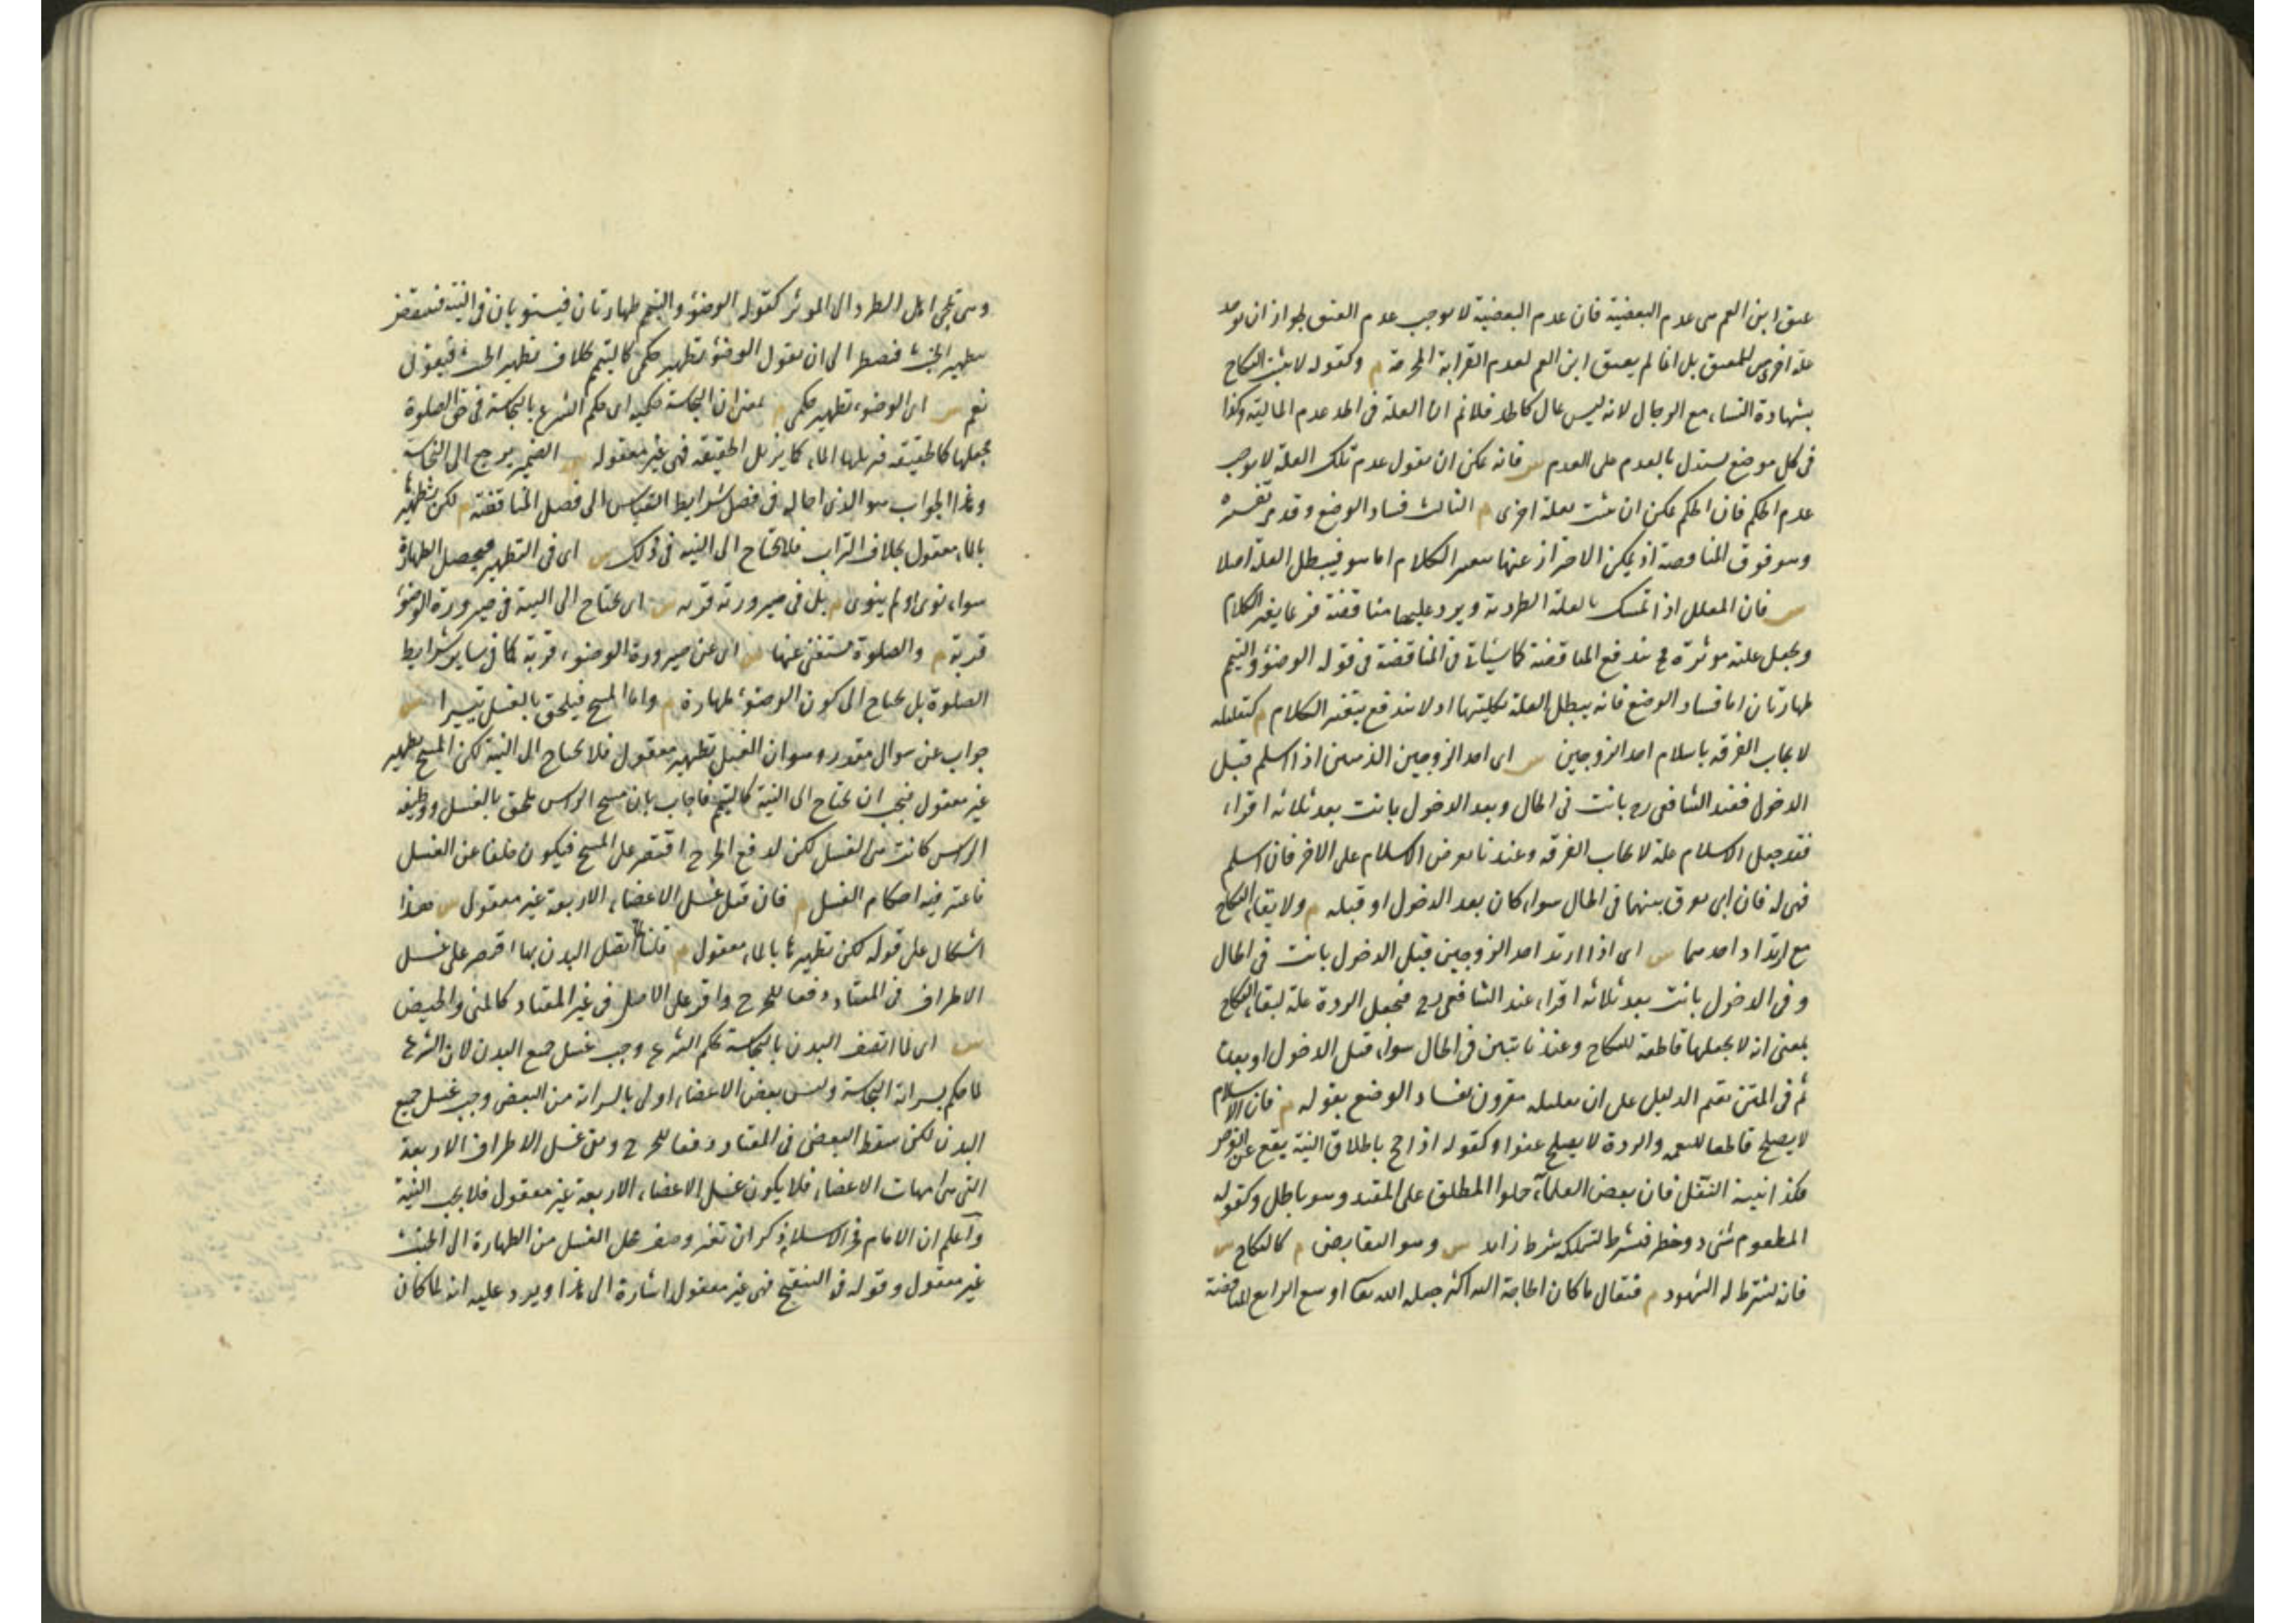 عتق ابن العم هى عدم البعضية فان عدم البعضية لا يوجب عدم العتق لجواز ان يوجد
علة اخرى للعتق بل انما لم يعتق ابن العم لعدم القرابة المحرمة م وكقوله لا يثبت النكاح
بشهادة النساء مع الرجال لانه ليس بمال كالحد فلانم ان العلة فى الحد عدم المالية وكذا
فى كل موضع يستدل بالعدم على العدم س فانه يمكن ان يقول عدم تلك العلة لا يوجب
عدم الحكم فان الحكم يمكن ان يثبت بعلة اخرى م الثالث فساد الوضع وقد مر تفسيره
وهو فوق المناقضة اذ يمكن الاحتراز عنها بتغيير الكلام اما هو فيبطل العلة اصلا
س فان المعلل اذا تمسك بالعلة الطردية ويرد عليها مناقضة فربما يغير الكلام
ويجعل علته موثرة فح تندفع المناقضة كما سياتى فى المناقضة فى قوله الوضوء والتيمم
طهارتان اما فساد الوضع فانه يبطل العلة بكليتها اذ لا يندفع بتغير الكلام م كتعليله
لايجاب الفرقه باسلام احد الزوجين س اى احد الزوجين الذميين اذا اسلم قبل
الدخول فعند الشافعى رح بانت فى الحال وبعد الدخول بانت بعد ثلاثه اقراء
فقد جعل الاسلام علة لايجاب الفرقه وعندنا يعرض الاسلام على الاخر فان اسلم
فهى له فان ابى يفرق بينهما فى الحال سواء كان بعد الدخول او قبله م ولابقاء النكاح
مع ارتداد احدهما س اى اذا ارتد احد الزوجين قبل الدخول بانت فى الحال
وفى الدخول بانت بعد ثلاثه اقراء عند الشافعى رح فيجعل الردة علة لبقاء النكاح
بمعنى انه لا يجعلها قاطعة للنكاح وعندنا تبين فى الحال سواء قبل الدخول او بعده
ثم فى المتن يقيم الدليل على ان تعليله مقرون بفساد الوضع بقوله م فان الاسلام
لا يصلح قاطعا للنعمة والردة لا يصلح عفوا وكقوله اذا حج باطلاق النية يقع عن الفرض
فكذا بنية النفل فان بعض العلماء حملوا المطلق على المقيد وهو باطل وكقوله
المطعوم شئ ذو خطر فيشترط لتملكه شرط زايد س وهو التقابض م كالنكاح س
فانه يشترط له الشهود م فيقال ما كان الحاجة اليه اكثر جعله الله تعالى اوسع الرابع المناقضة
وهى تلجئ اهل الطرد الى الموثر كقوله الوضوء والتيمم طهارتان فيستويان فى النية فينتقض
بتطهير الخبث فيضطر الى ان يقول الوضوء تطهير حكمى كالتيمم بخلاف تطهير الخبث فيقول
نعم س اى الوضوء تطهير حكمى م بمعنى ان النجاسة حكمية اى حكم الشرع بالنجاسة فى حق الصلوة
فجعلها كالحقيقه فيزيلها الماء كما يزيل الحقيقه فهى غير معقوله س الضمير يرجع الى النجاسة
وهذا الجواب هو الذى احاله فى فصل شرايط القياس الى فصل المناقضة م لكن تطهيرها
بالماء معقول بخلاف التراب فلا يحتاج الى النيه فى ذلك س اى فى التطهير فيحصل الطهارة
سواء نوى او لم ينوى م بل فى صيرورته قربه س اى يحتاج الى النية فى صيرورة الوضوء
قربة م والصلوة تستغنى عنها س اى عن صيرورة الوضوء قربة كما فى ساير شرايط
الصلوة بل يحتاج الى كون الوضوء طهارة م واما المسح فيلحق بالغسل تيسيرا س
جواب عن سوال مقدر وهو ان الغسل تطهير معقول فلا يحتاج الى النية لكن المسح تطهير
غير معقول فيجب ان يحتاج الى النية كالتيمم فاجاب بان مسح الراس ملحق بالغسل ووظيفه
الراس كانت هى الغسل لكن لدفع الحرج اقتصر على المسح فيكون خلفا عن الغسل
فاعتبر فيه احكام الغسل م فان قيل غسل الاعضاء الاربعة غير معقول س هذا
اشكال على قوله لكن تطهيرها بالماء معقول م قلنا لما اتصف البدن بها اقتصر على غسل
الاطراف فى المعتاد دفعا للحرج واقر على الاصل فى غير المعتاد كالمنى والحيض
س اى لما اتصف البدن بالنجاسة بحكم الشرع وجب غسل جميع البدن لان الشرع
لما حكم بسراية النجاسة وليس بعض الاعضاء اولى بالسراية من البعض وجب غسل جميع
البدن لكن سقط البعض فى المعتاد دفعا للحرج وبقى غسل الاطراف الاربعة
التى هى امهات الاعضاء فلا يكون غسل الاعضاء الاربعة غير معقول فلا يجب النية
واعلم ان الامام فخر الاسلام ذكر ان تغير وصف محل الغسل من الطهارة الى الخبث
غير معقول وقوله فى التنقيح فهى غير معقول اشارة الى هذا ويرد عليه انه لما كان